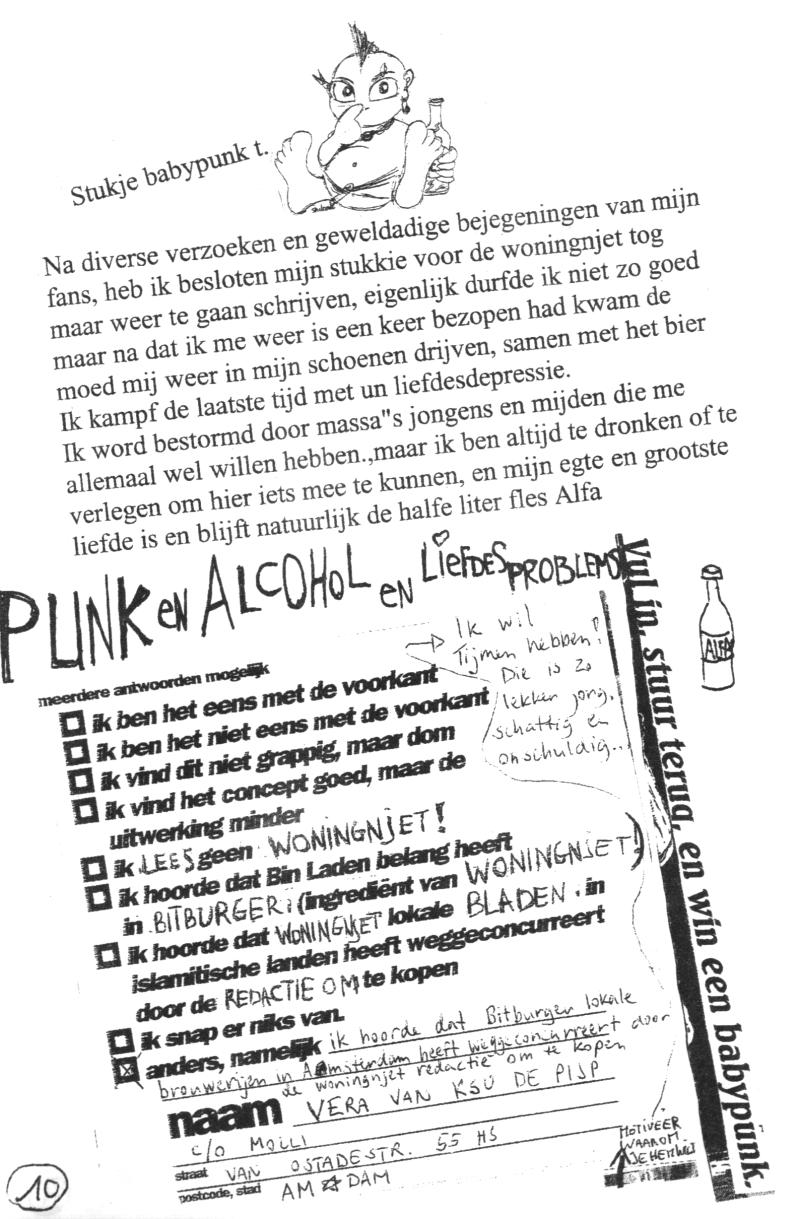 Stukje babypunk t.
Na diverse verzoeken en geweldadige bejegeningen van mijn
fans, heb ik besloten mijn stukkie voor de woningnjet tog
maar weer te gaan schrijven, eigenlijk durfde ik niet zo goed
maar na dat ik me weer is een keer bezopen had kwam de
moed mij weer in mijn schoenen drijven, samen met het bier
Ik kampf de laatste tijd met un liefdesdepressie.
Ik word bestormd door massa"s jongens en mijden die me
allemaal wel willen hebben.,maar ik ben altijd te dronken of te
verlegen om hier iets mee te kunnen, en mijn egte en grootste
liefde is en blijft natuurlijk de halfe liter fles Alfa
PUNK en ALCOHOL en LIEFDESPROBLEMS
Vul in, stuur terug, en win een babypunk.
ALFA
Ik wil
Tijmen hebben!
Die is zo
lekker jong,
schattig en
onschuldig...
meerdere antwoorden mogelijk
ik ben het eens met de voorkant
ik ben het niet eens met de voorkant
ik vind dit niet grappig, maar dom
ik vind het concept goed, maar de
uitwerking minder
ik LEES geen WONINGNJET!
ik hoorde dat Bin Laden belang heeft
in BITBURGER (ingrediënt van WONINGNJET!)
ik hoorde dat WONINGNJET lokale BLADEN in
islamitische landen heeft weggeconcurreert
door de REDACTIE OM te kopen
ik snap er niks van.
anders, namelijk ik hoorde dat Bitburger lokale
brouwerijen in Amsterdam heeft weggeconcurreert door
de woningnjet redactie om te kopen
naam VERA VAN KSU DE PIJP
c/o MOLLI
straat VAN OSTADESTR. 55 HS
postcode, stad AM☆DAM
MOTIVEER
WAAROM
JE HEM WIL
10